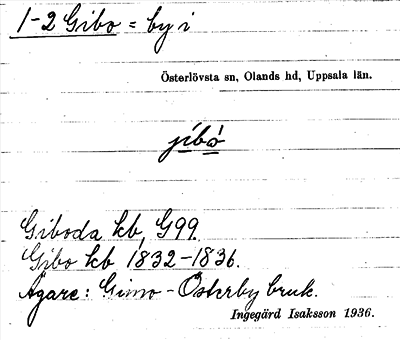 1-2 Gibo = by i
Österlövsta sn, Olands hd, Uppsala län.
jíbò
Giboda kb G99.
Gibo kb 1832-1836.
Ägare: Gimo-Österby bruk.
Ingegärd Isaksson 1936.